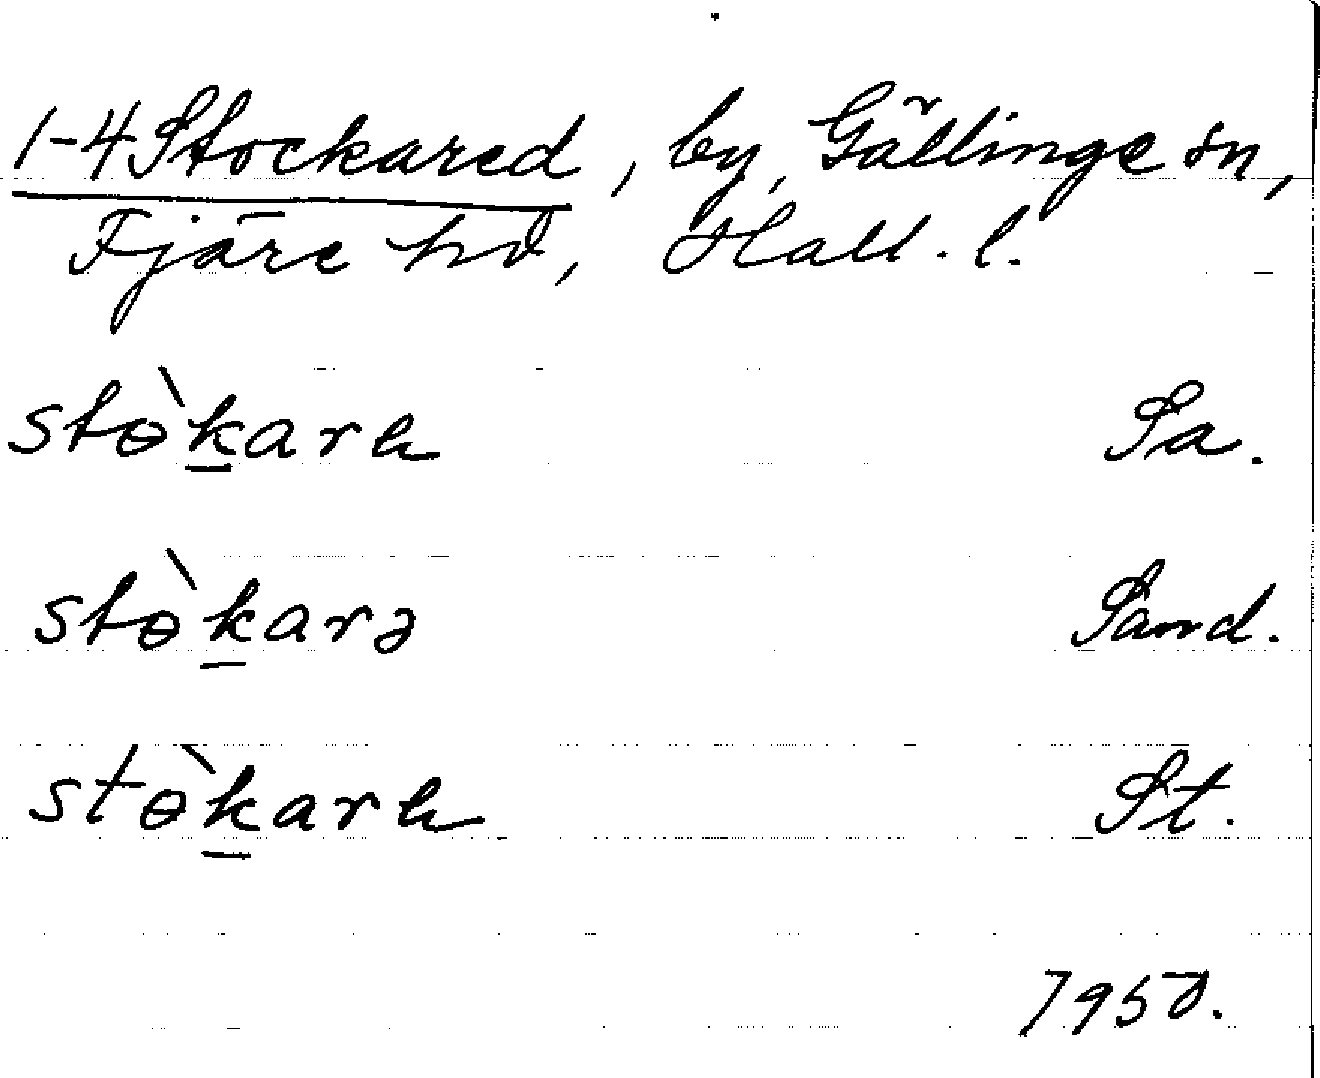 1-4 Stockared, by, Gällinge sn,
Fjäre hd, Hall. l.
stɵ̀kara Sa.
stɵ̀karə Sand.
stɵ̀kara St.
1950.